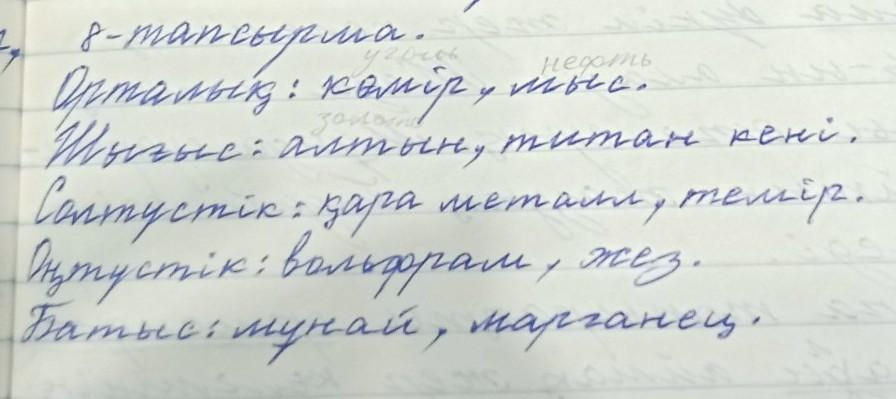 8-тапсырма.
уголь нефть
Орталық: көмір, мыс.
золото
Шығыс: алтын, титан кені.
Солтүстік: қара металл, темір.
Оңтүстік: вольфрам, жез.
Батыс: мұнай, марганец.